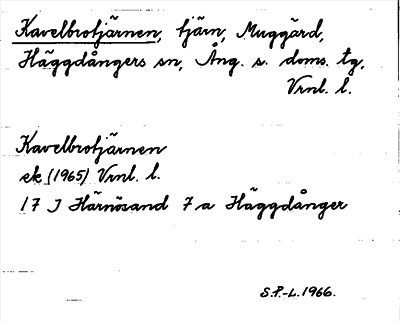 Kavelbrotjärnen, tjärn, Muggärd,
Häggdångers sn, Ång. s. doms. tg,
Vrnl. l.
Kavelbrotjärnen
ek (1965) Vrnl. l.
17 J Härnösand 7 a Häggdånger
S.P.-L. 1966.